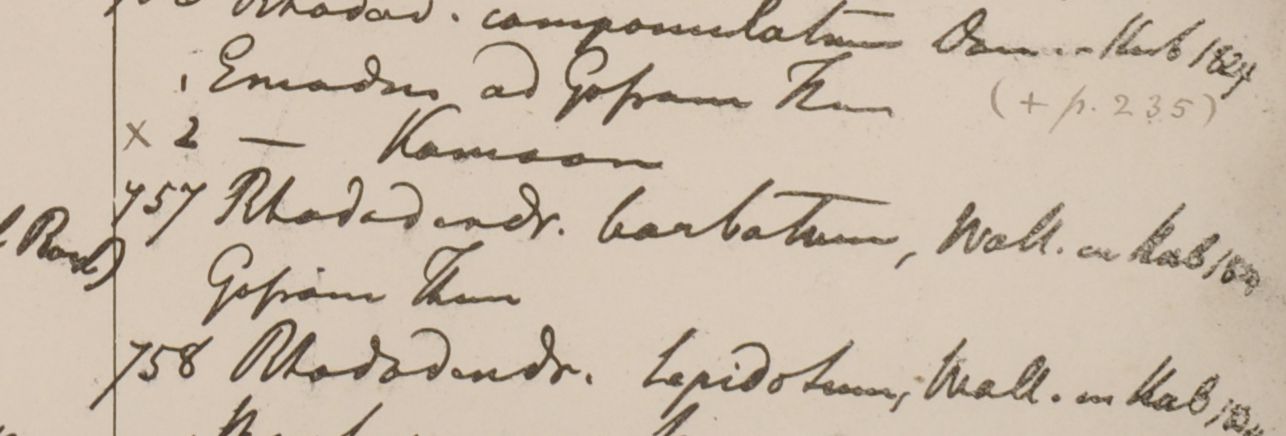 Rhodod. campanulatum Don in Herb 1824
1 Emodus ad Gosram Than
(+ p. 235)
x 2 — Kamaon
757 Rhododendr. barbatum, Wall. in Herb 182
Gosram Than
758 Rhododendr. lepidotum, Wall. in Herb 182